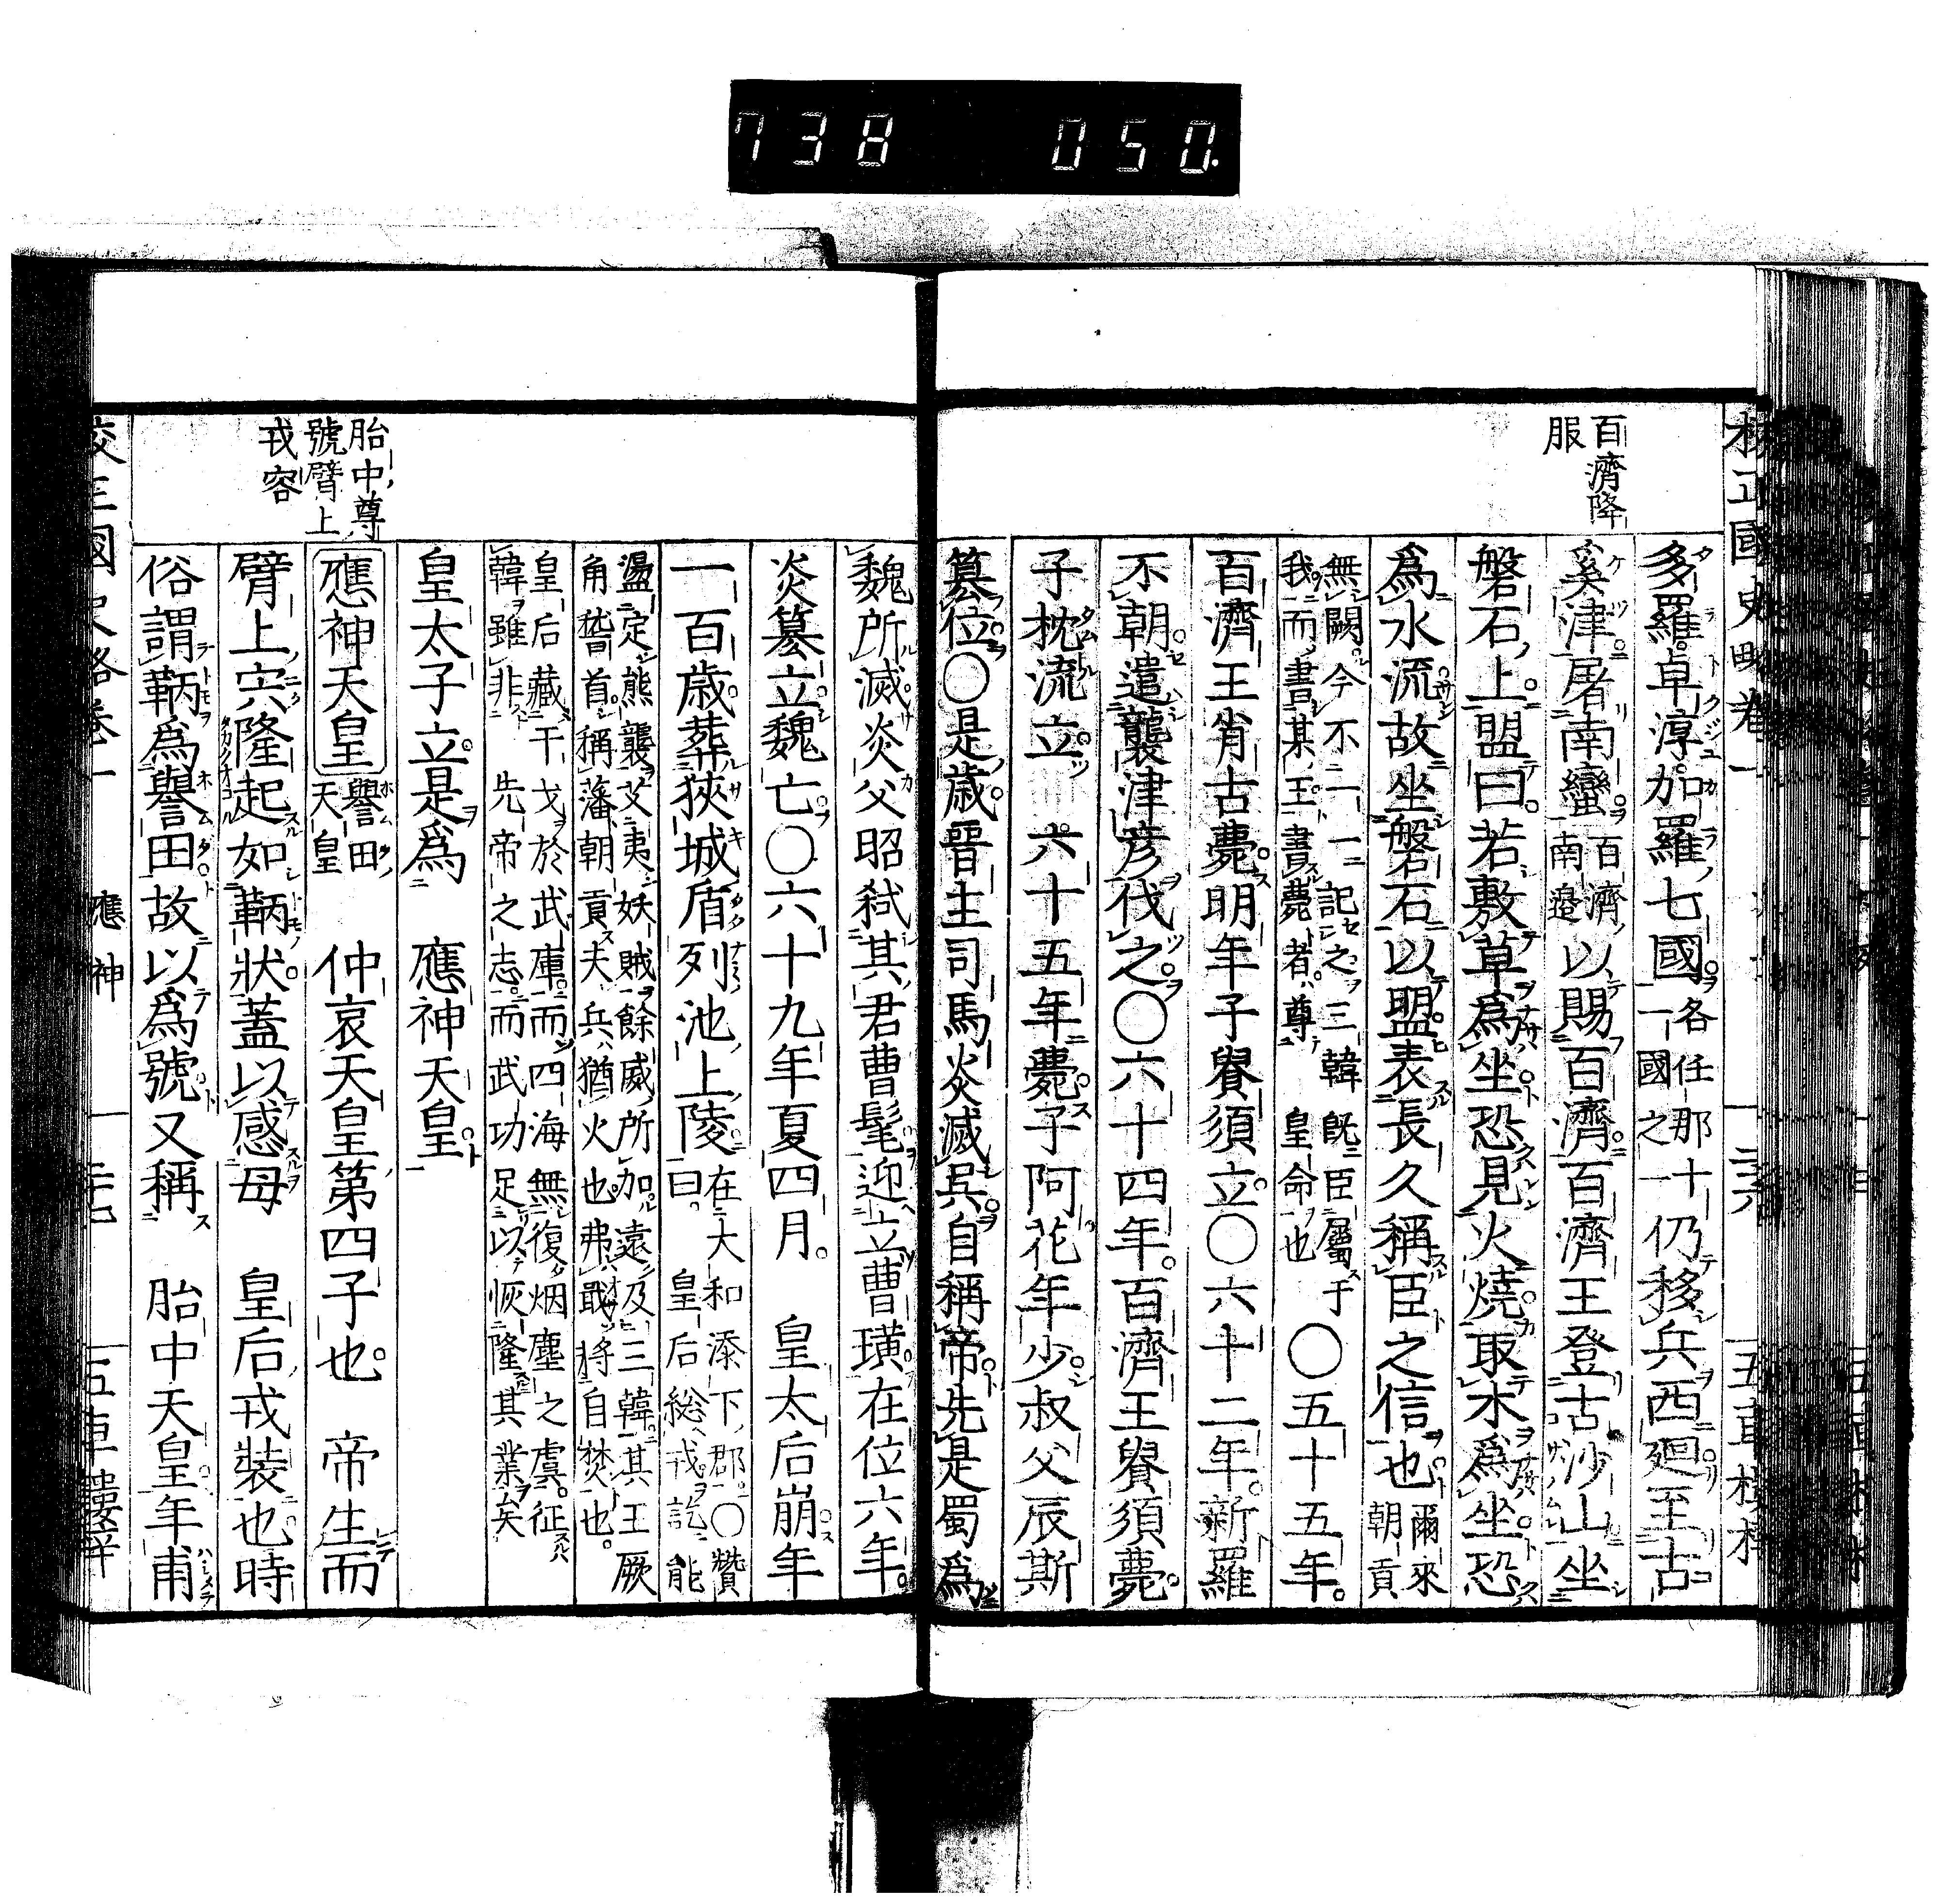 738 050.
校正國史略卷一
二十六
五車樓梓
百濟降
服
多羅卓淳加羅七國各任那十一國之一仍移兵西廻至古
奚津屠南蠻百濟南邉以賜百濟百濟王登古沙山坐
磐石上盟曰若敷草爲坐恐見火燒取木爲坐恐
爲水流故坐磐石以盟表長久稱臣之信也爾來朝貢
無闕今不二一記之三韓旣臣屬于
我而書某王書薨者尊皇命也〇五十五年
百濟王肖古薨明年子貴須立〇六十二年新羅
不朝遣襲津彦伐之〇六十四年百濟王貴須薨
子枕流立六十五年薨子阿花年少叔父辰斯
簒位〇是歳晉主司馬炎滅呉自稱帝先是蜀爲
魏所滅炎父昭弑其君曹髦迎立曹璜在位六年
炎簒立魏亡〇六十九年夏四月皇太后崩年
一百歳葬狹城盾列池上陵在大和添下郡〇贊曰皇后総戎訖能
盪定熊襲艾夷妖賊餘威所加遠及三韓其王厥
角稽首稱藩朝貢夫兵猶火也弗戢將自焚也
皇后藏干戈於武庫而四海無復烟塵之虞征
韓雖非先帝之志而武功足以恢隆其業矣
皇太子立是爲應神天皇
胎中尊
號臂上
戎容
應神天皇譽田天皇仲哀天皇第四子也帝生而
臂上宍隆起如鞆狀蓋以感母皇后戎裝也時
俗謂鞆爲譽田故以爲號又稱胎中天皇年甫
校正國史略卷一
應神
二十七
五車樓梓